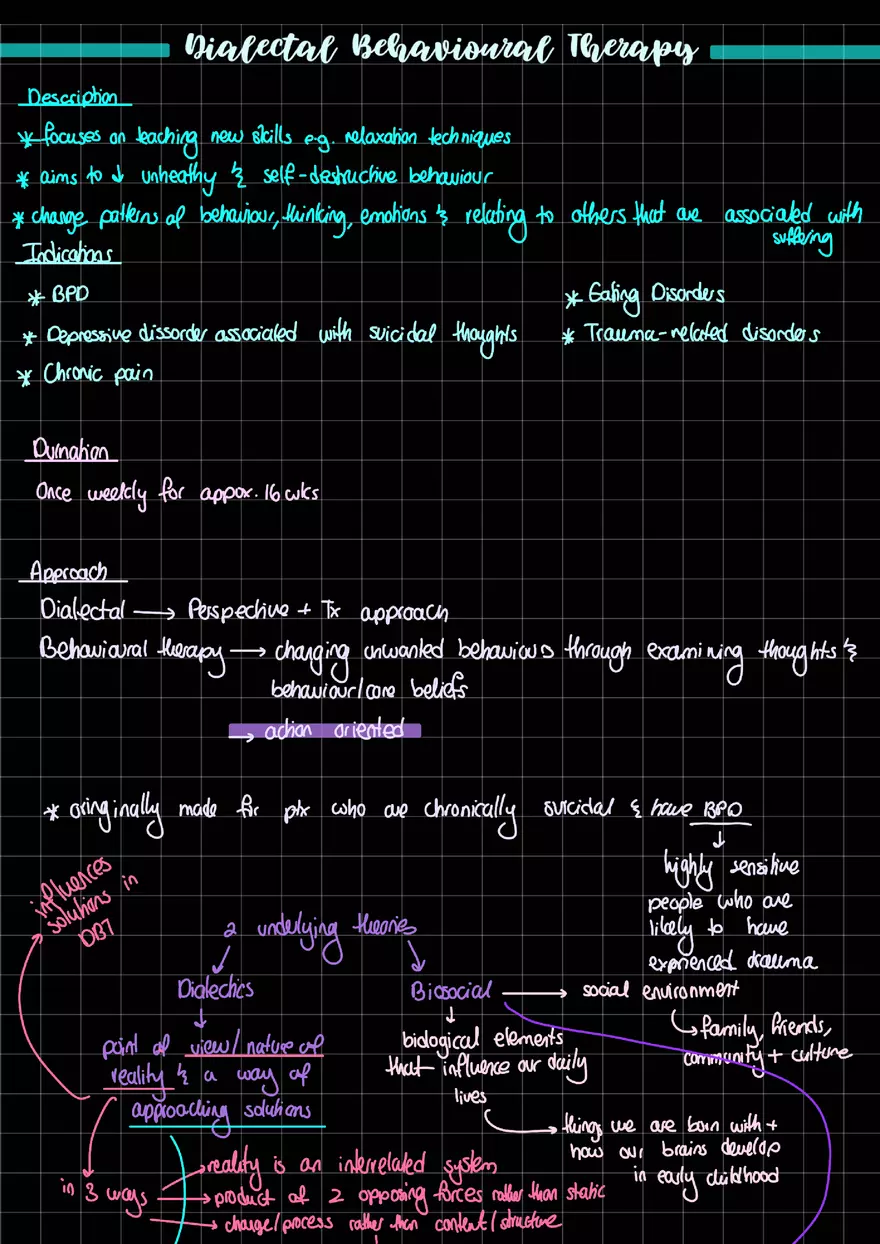 Dialectal Behavioural Therapy
Description
* focuses on teaching new skills e.g. relaxation techniques
* aims to ↓ unheathy & self-destructive behaviour
* change patterns of behaviour, thinking, emotions & relating to others that are associated with
suffering
Indications
* BPD
* Eating Disorders
* Depressive dissorder associated with suicidal thoughts
* Trauma-related disorders
* Chronic pain
Durnation
Once weekly for appox. 16 wks
Approach
Dialectal → Perspective + Tx approach
Behavioural therapy → changing unwanted behaviours through examining thoughts &
behaviour/core beliefs
→ action oriented
* oringinally made for ptx who are chronically suicidal & have BPD
↓
highly sensitive
people who are
likely to have
exprienced trauma
influences
solutions in
DBT
2 underlying theories
Dialectics
Biosocial → social environment
family, friends,
community + culture
point of view/nature of
reality & a way of
approaching solutions
biological elements
that influence our daily
lives
things we are born with +
how our brains develop
in early childhood
in 3 ways
→ reality is an interrelated system
→ product of 2 opposing forces rather than static
→ change/process rather than content/structure